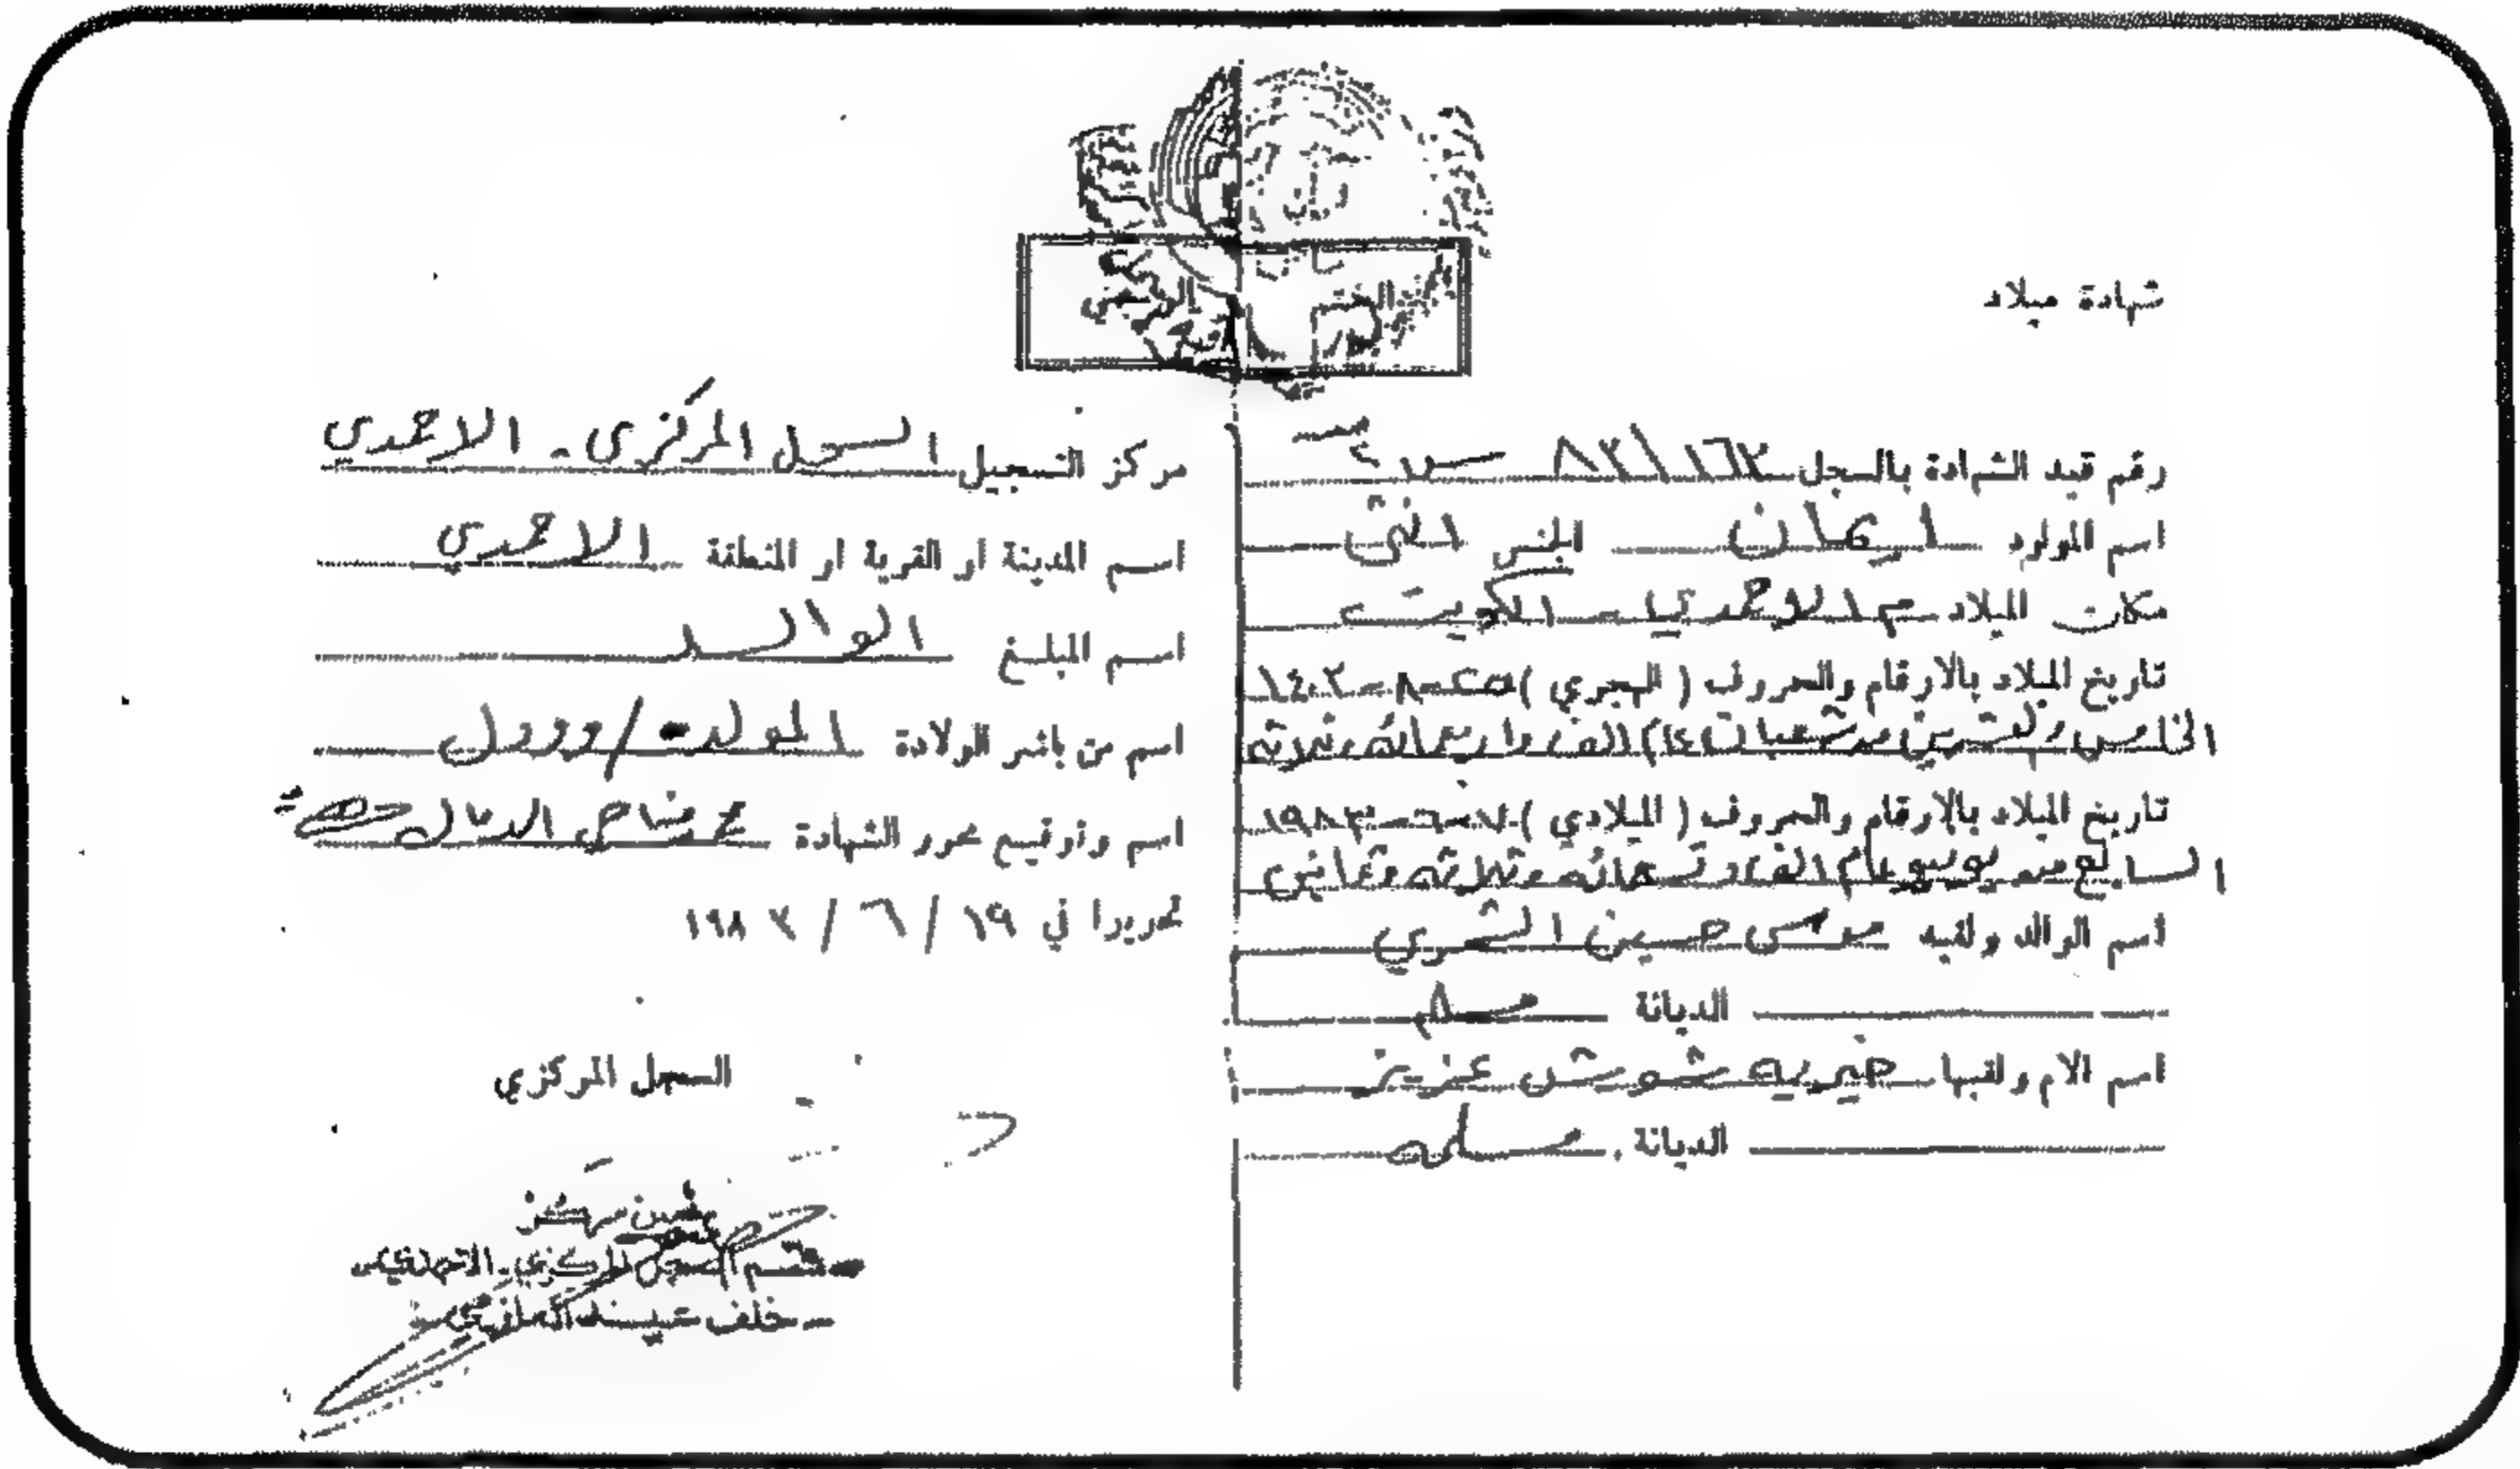 شهادة ميلاد
رقم قيد الشهادة بالسجل ١٦٢ / ٨٣
اسم المولود ايمان الجنس انثى
مكان الميلاد م الاحمدي - الكويت
تاريخ الميلاد بالارقام والحروف ( الهجري ) ٢٥ - ٨ - ١٤٠٣
الخامس والعشرين من شعبان الف واربعمائه وثلاثه
تاريخ الميلاد بالارقام والحروف ( الميلادي ) ٧ - ٦ - ١٩٨٣
السابع من يونيو عام الف وتسعمائه وثلاثه وثمانين
اسم الوالد ولقبه موسى حسين الشمري
الديانة مسلم
اسم الام ولقبها خيريه شويش عزيز
الديانة مسلمه
مركز التسجيل السجل المركزى - الاحمدي
اسم المدينة او القرية او المنطقة الاحمدي
اسم المبلغ الوالد
اسم من باشر الولادة المولده /
اسم وتوقيع محرر الشهادة
تحريرا في ١٩ / ٦ / ١٩٨٣
السجل المركزي
قسم السجل المركزي
خلف